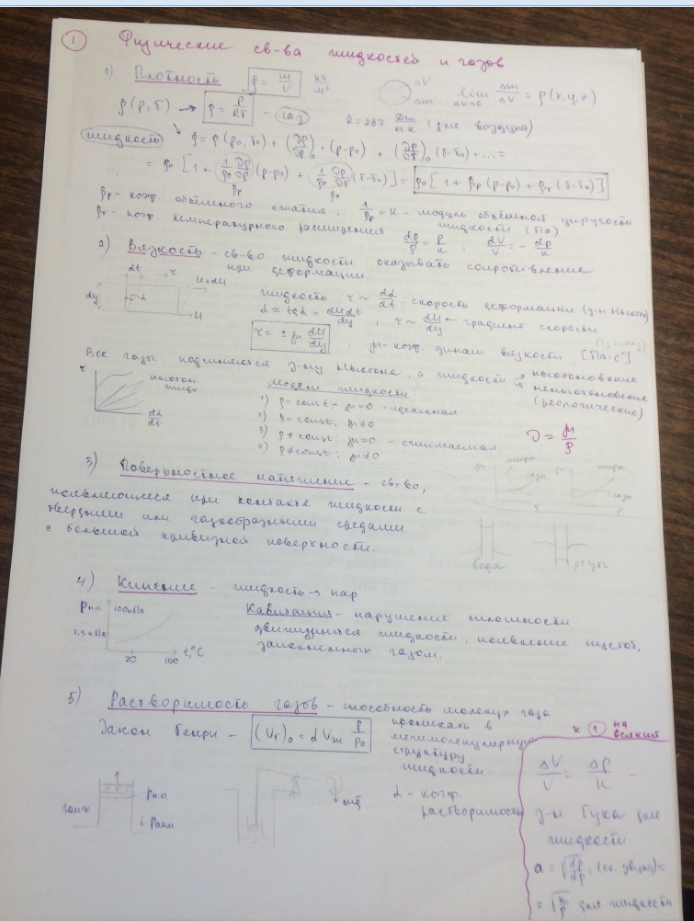 ① Физические св-ва жидкостей и газов
1) Плотность ρ = m/V кг/м³
ΔV
Δm
lim ΔV→0 Δm/ΔV = ρ(x,y,z)
ρ(p,T) → ρ = p/RT - газ
R=287 Дж/кг·К (для воздуха)
жидкость ρ = ρ(p₀,T₀) + (∂ρ/∂p)₀ · (p-p₀) + (∂ρ/∂T)₀ (T-T₀) + ... =
= ρ₀ [1 + 1/ρ₀ ∂ρ/∂p (p-p₀) + 1/ρ₀ ∂ρ/∂T (T-T₀)] = ρ₀[1 + βp (p-p₀) + βT (T-T₀)]
βp βT
βp - коэф. объёмного сжатия; 1/βp = K - модуль объёмной упругости
βT - коэф. температурного расширения жидкости (Па)
dρ/ρ = dp/K ; dV/V = - dp/K
2) Вязкость - св-во жидкости оказывать сопротивление
при деформации.
dl τ u+du
dy α u
жидкость τ ~ dα/dt - скорость деформации (з-н Ньютона)
α = tgα = du dt/dy ; τ ~ du/dy ← градиент скорости
τ = ± μ du/dy ; μ - коэф. динам. вязкости [Па·с]
Все газы подчиняются з-ну Ньютона, а жидкости → ньютоновские
→ неньютоновские
(реологические)
τ
ньютон.
жидк.
dα/dt
Модели жидкости:
1) ρ = const, μ=0 - идеальная
2) ρ = const, μ≠0
3) ρ ≠ const, μ=0 - сжимаемая
4) ρ ≠ const; μ≠0
ν = μ/ρ
3) Поверхностное натяжение - св-во,
появляющееся при контакте жидкости с
твердыми или газообразными средами
с большой кривизной поверхности.
μ жидк. газы T
жидк. газы p
вода ртуть
4) Кипение - жидкость → пар
pн.п. 100кПа
20 100 t,°C
Кавитация - нарушение сплошности
движущейся жидкости, появление пустот,
заполненных газом.
5) Растворимость газов - способность молекул газа
проникать в
межмолекулярную
структуру
жидкости
Закон Генри - (Vг)₀ = α Vж p/p₀
α - коэф.
растворимости
pн.п.
pатм
mg
к ① на
всякий
ΔV/V = Δp/K -
з-н Гука для
жидкости
a = √(dp/dρ) (ск. звука) =
= √(K/ρ) для жидкости